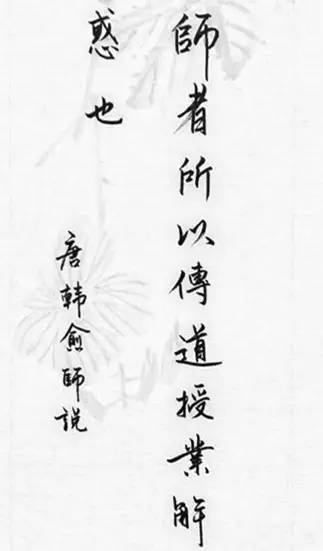 師者所以傳道授業解
惑也
唐韓愈師説